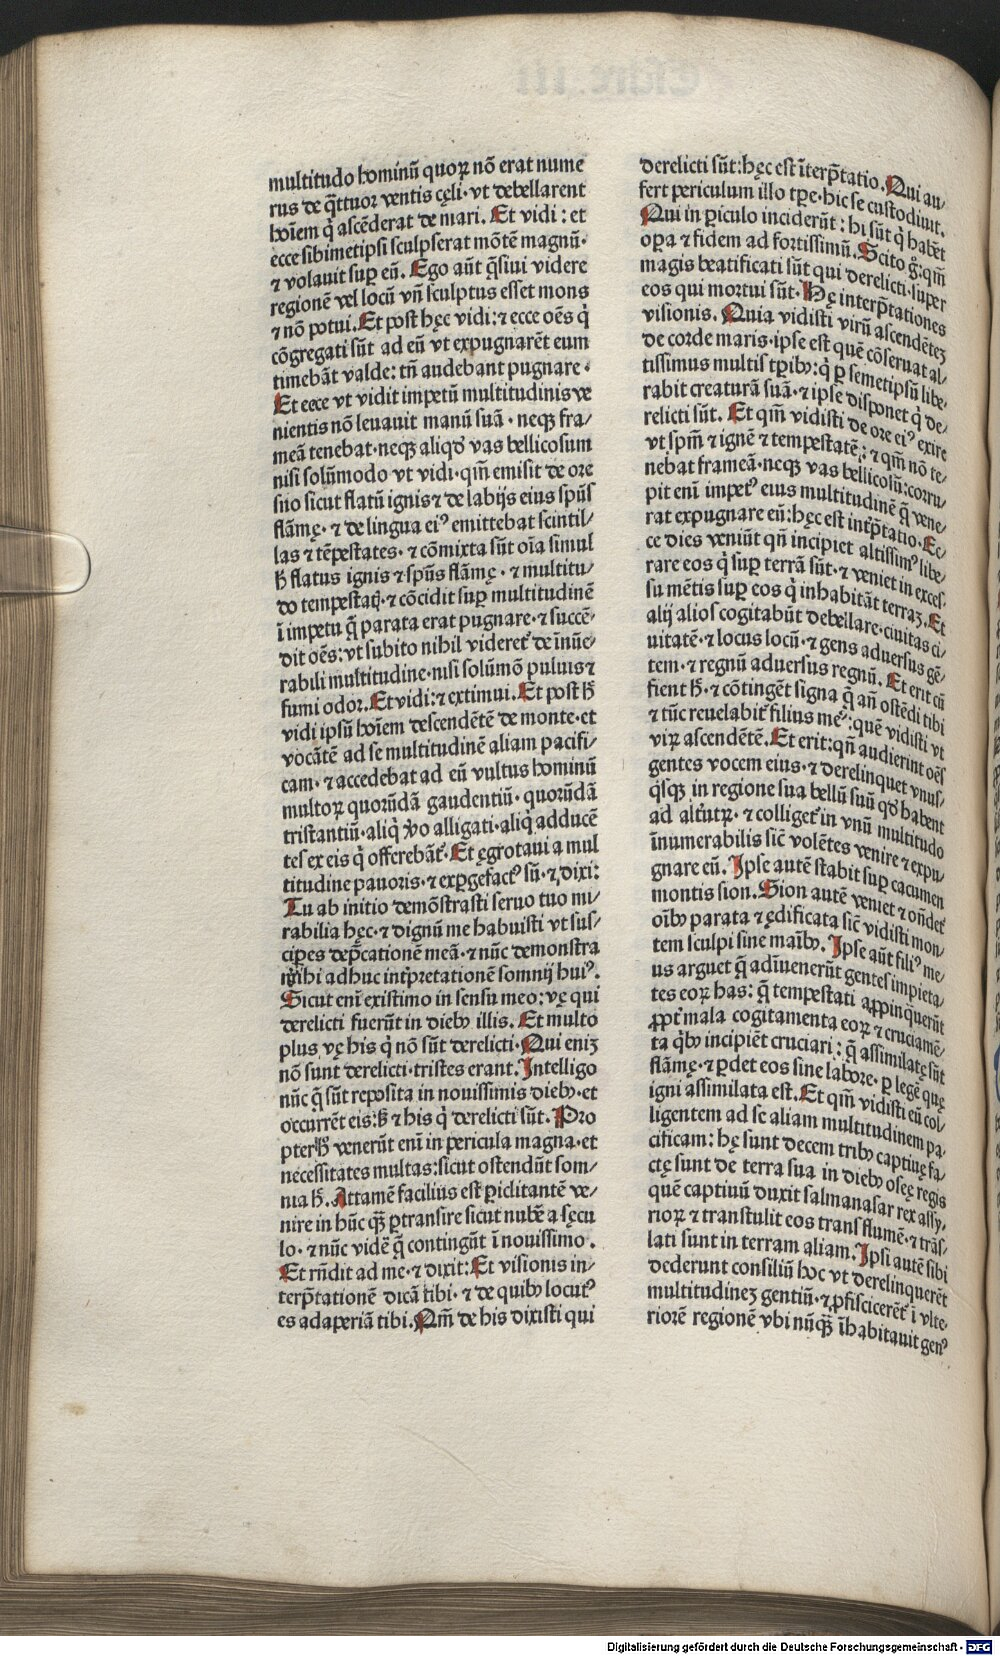 multitudo hominū quoꝝ nō erat nume
rus de q̄ttuor ventis cęli· vt debellarent
hoīem q̇ ascēderat de mari. Et vidi : et
ecce sibimetipsi sculpserat mōtē magnū·
⁊ volauit suꝑ eū. Ego aūt q̄siui videre
regionē vel locū vn̄ sculptus esset mons
⁊ nō potui. Et post hęc vidi: ⁊ ecce oēs q̇
cōgregati sūt ad eū vt expugnarēt eum
timebāt valde: tn̄ audebant pugnare ·
Et ecce vt vidit impetū multitudinis ve
nientis nō leuauit manū suā · neqꝫ fra/
meā tenebat· neqꝫ aliqd̓ vas bellicosum
nisi solūmodo vt vidi· qm̄ emisit de ore
suo sicut flatū ignis ⁊ de labijs eius spūs
flāmę · ⁊ de lingua eiꝰ emittebat scintil/
las ⁊ tēpestates · ⁊ cōmixta sūt oīa simul
h̄ flatus ignis ⁊ spūs flāmę · ⁊ multitu/
do tempestatꝭ· ⁊ cōcidit suꝑ multitudinē
ī impetu q̄ parata erat pugnare· ⁊ succē·
dit oēs: vt subito nihil videret᷑ de īnūe/
rabili multitudine· nisi solūmō puluis ⁊
fumi odor. Et vidi: ⁊ extimui. Et post h̄
vidi ipsū hoīem descendētē de monte· et
vocātē ad se multitudinē aliam pacifi/
cam· ⁊ accedebat ad eū vultus hominū
multoꝝ quorūdā gaudentiū· quorūdā
tristantiū· aliq̇ v̓o alligati· aliq̇ adducē
tes ex eis q̇ offerebāt᷑. Et ęgrotaui a mul
titudine pauoris· ⁊ exꝑgefactꝰ sū· ⁊ dixi:
Tu ab initio demōstrasti seruo tuo mi/
rabilia hęc· ⁊ dignū me habuisti vt sus/
ciperes dep̄cationē meā· ⁊ nūc demonstra
mihi adhuc int̓pretationē somnij huiꝰ.
Sicut enī existimo in sensu meo: vę qui
derelicti fuerūt in dieb⁹ illis. Et multo
plus vę his q̇ nō sūt derelicti· Qui enīꝫ
nō sunt derelicti· tristes erant. Intelligo
nūc q̄ sūt reposita in nouissimis dieb⁹· et
occurrēt eis: s̄ꝫ ⁊ his q̇ derelicti sūt. Pro
pter h̄ venerūt enī in pericula magna· et
necessitates multas: sicut ostendūt som/
nia h̄. Attamē facilius est ꝑiclitantē ve/
nire in hūc qꝫ̄ ꝑtransire sicut nubē a sęcu
lo· ⁊ nūc videē q̄ contingūt ī nouissimo .
Et rn̄dit ad me· ⁊ dixit: Et visionis in/
terp̄tationē dicā tibi· ⁊ de quib⁹ locutꝰ
es adaperiā tibi. Qm̄ de his dixisti qui
derelicti sūt: hęc est īterp̄tatio. Qui au/
fert periculum illo tꝑe· hic se custodiuit.
Qui in ꝑiculo inciderūt : hi sūt q̇ habēt
oꝑa ⁊ fidem ad fortissimū. Scito g̊: qm̄
magis beatificati sūt qui derelicti· super
eos qui mortui sūt· Hę interp̄tationes
visionis. Quia vidisti virū ascendētēꝫ
de corde maris· ipse est quē cōseruat al/
tissimus multis tꝑib⁹: q̇ ꝑ semetipsū libe/
rabit creaturā suā· ⁊ ipse disponet q̇ de/
relicti sūt. Et qm̄ vidisti de ore eiꝰ exire
vt spm̄ ⁊ ignē ⁊ tempestatē: ⁊ qm̄ nō te/
nebat frameā· neqꝫ vas bellicosū: corru/
pit enī impetꝰ eius multitudinē q̄ vene/
rat expugnare eū: hęc est int̓p̄tatio. Ec/
ce dies veniūt qn̄ incipiet altissimꝰ libe/
rare eos q̇ suꝑ terrā sūt· ⁊ veniet in exces/
su mētis suꝑ eos q̇ inhabitāt terraꝫ. Et
alij alios cogitabūt debellare· ciuitas ci/
uitatē· ⁊ locus locū· ⁊ gens aduersus gē/
tem· ⁊ regnū aduersus regnū. Et erit cū
fient h̄· ⁊ cōtingēt signa q̄ an̄ ostēdi tibi
⁊ tūc reuelabit᷑ filius meꝰ: quē vidisti vt
viꝝ ascendētē. Et erit: qn̄ audierint oēs
gentes vocem eius· ⁊ derelinquet vnus/
q̇sqꝫ in regione sua bellū suū qd̓ habent
ad alt̓utꝝ· ⁊ colliget᷑ in vnū multitudo
īnumerabilis sic̄ volētes venire ⁊ expu
gnare eū. Ipse autē stabit suꝑ cacumen
montis sion. Sion autē veniet ⁊ on̄det᷑
oīb⁹ parata ⁊ ędificata sic̄ vidisti mon/
tem sculpi sine maīb⁹. Ipse aūt filiꝰ me/
us arguet q̄ adīuenerūt gentes impieta/
tes eoꝝ has: q̄ tempestati aꝓpinq̄uerūt
ꝓpt̓ mala cogitamenta eoꝝ ⁊ cruciamē/
ta q̇b⁹ incipiēt cruciari : q̄ assimilatę sūt
flāmę· ⁊ ꝑdet eos sine labore· ꝑ legē quę
igni assimilata est. Et qm̄ vidisti eū col/
ligentem ad se aliam multitudinem pa/
cificam: hę sunt decem trib⁹ captiuę fa/
ctę sunt de terra sua in dieb⁹ oseę regis
quē captiuū duxit salmanasar rex assy/
rioꝝ ⁊ transtulit eos trans flumē· ⁊ trās/
lati sunt in terram aliam. Ipsi autē sibi
dederunt consiliū hoc vt derelinquerēt
multitudineꝫ gentiū· ⁊ ꝓfisciscerēt᷑ ī vlte/
riorē regionē vbi nūqꝫ̄ īhabitauit genꝰ
Digitalisierung gefördert durch die Deutsche Forschungsgemeinschaft · DFG